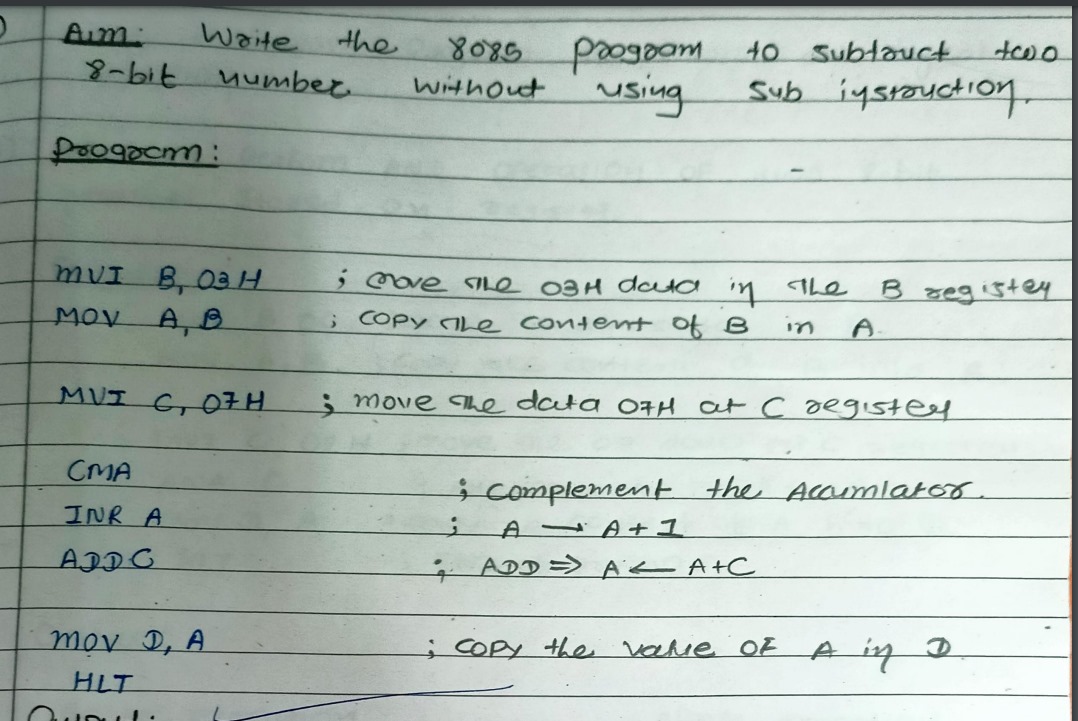 Aim: Write the 8085 program to subtract two
8-bit number without using sub instruction.
Program:
MVI B, 03H ; move the 03H data in the B register
MOV A, B ; copy the content of B in A.
MVI C, 07H ; move the data 07H at C register
CMA ; complement the Accumlator.
INR A ; A → A + 1
ADD C ; ADD ⇒ A ← A+C
MOV D, A ; copy the value of A in D
HLT
Output: